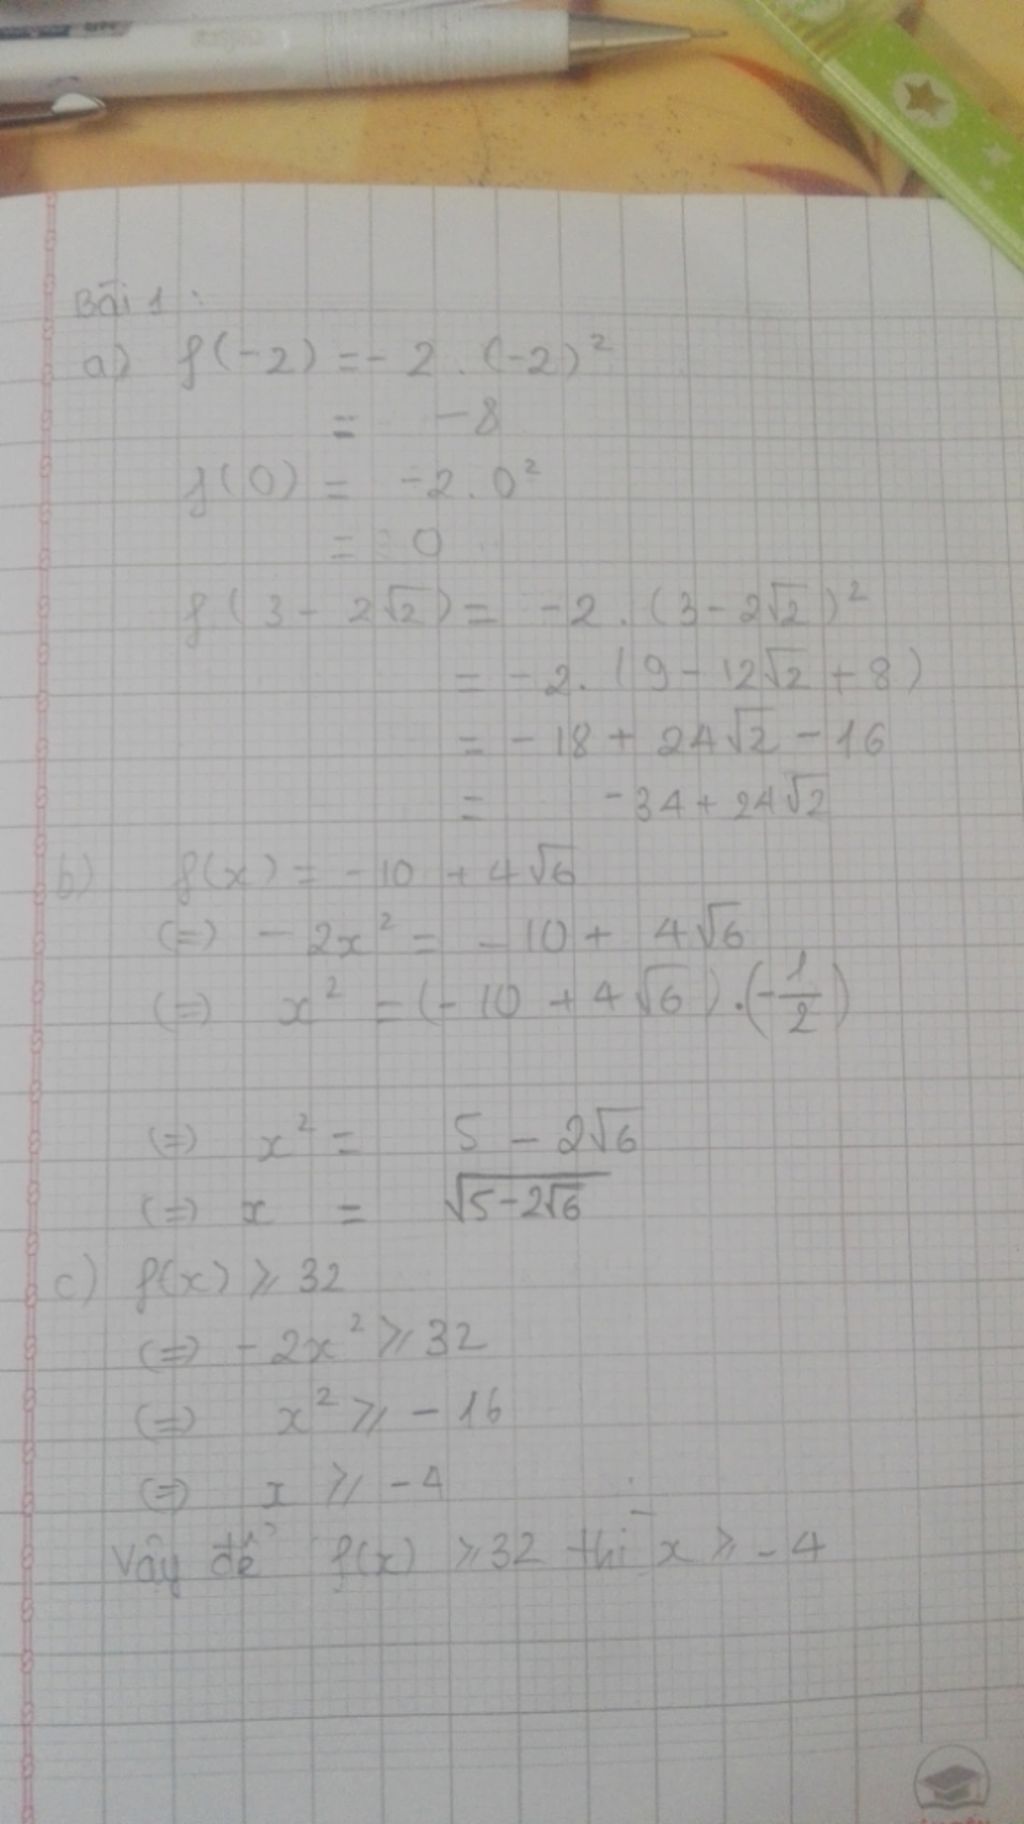 Bài 1 :
a) f(-2) = - 2 . (-2)²
= -8
f(0) = -2 . 0²
= 0
f(3 - 2√2) = -2 . (3 - 2√2)²
= -2. (9 - 12√2 + 8)
= -18 + 24√2 - 16
= -34 + 24√2
b) f(x) = -10 + 4√6
(=) - 2x² = - 10 + 4√6
(=) x² = (- 10 + 4√6) . (-1/2)
(=) x² = 5 - 2√6
(=) x = √(5-2√6)
c) f(x) ⩾ 32
(=) - 2x² ⩾ 32
(=) x² ⩾ - 16
(=) x ⩾ -4
Vậy để f(x) ⩾ 32 thì x ⩾ - 4